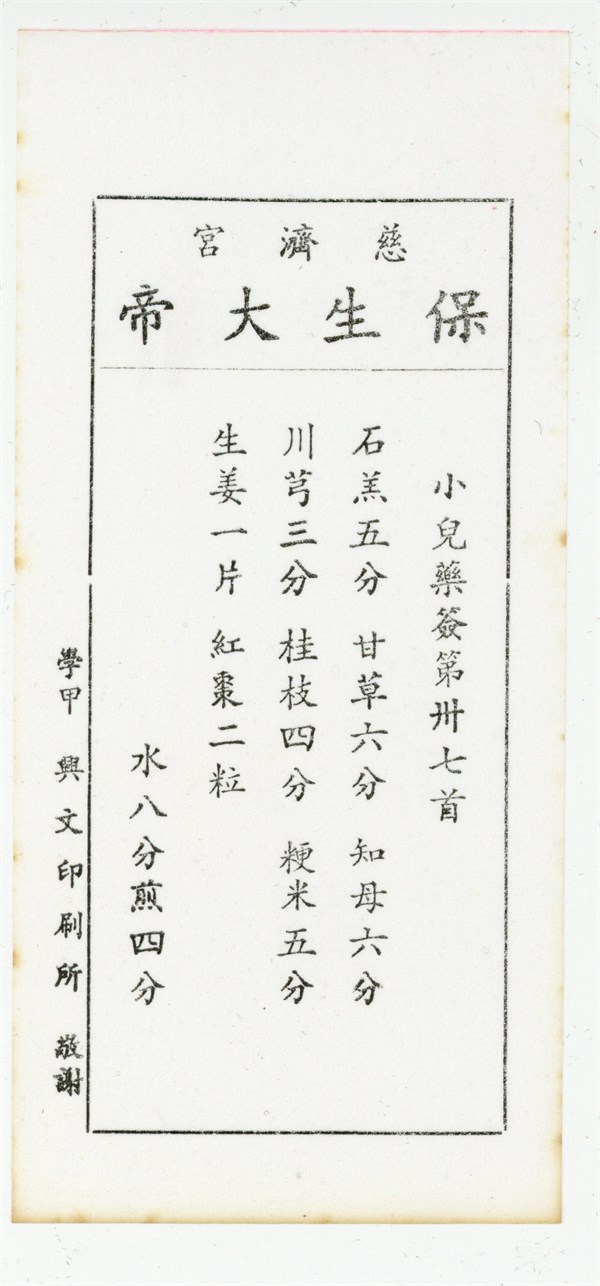 慈濟宮
保生大帝
小兒藥簽第卅七首
石羔五分 甘草六分 知母六分
川芎三分 桂枝四分 粳米五分
生姜一片 紅棗二粒
水八分煎四分
學甲 興文印刷所 敬謝